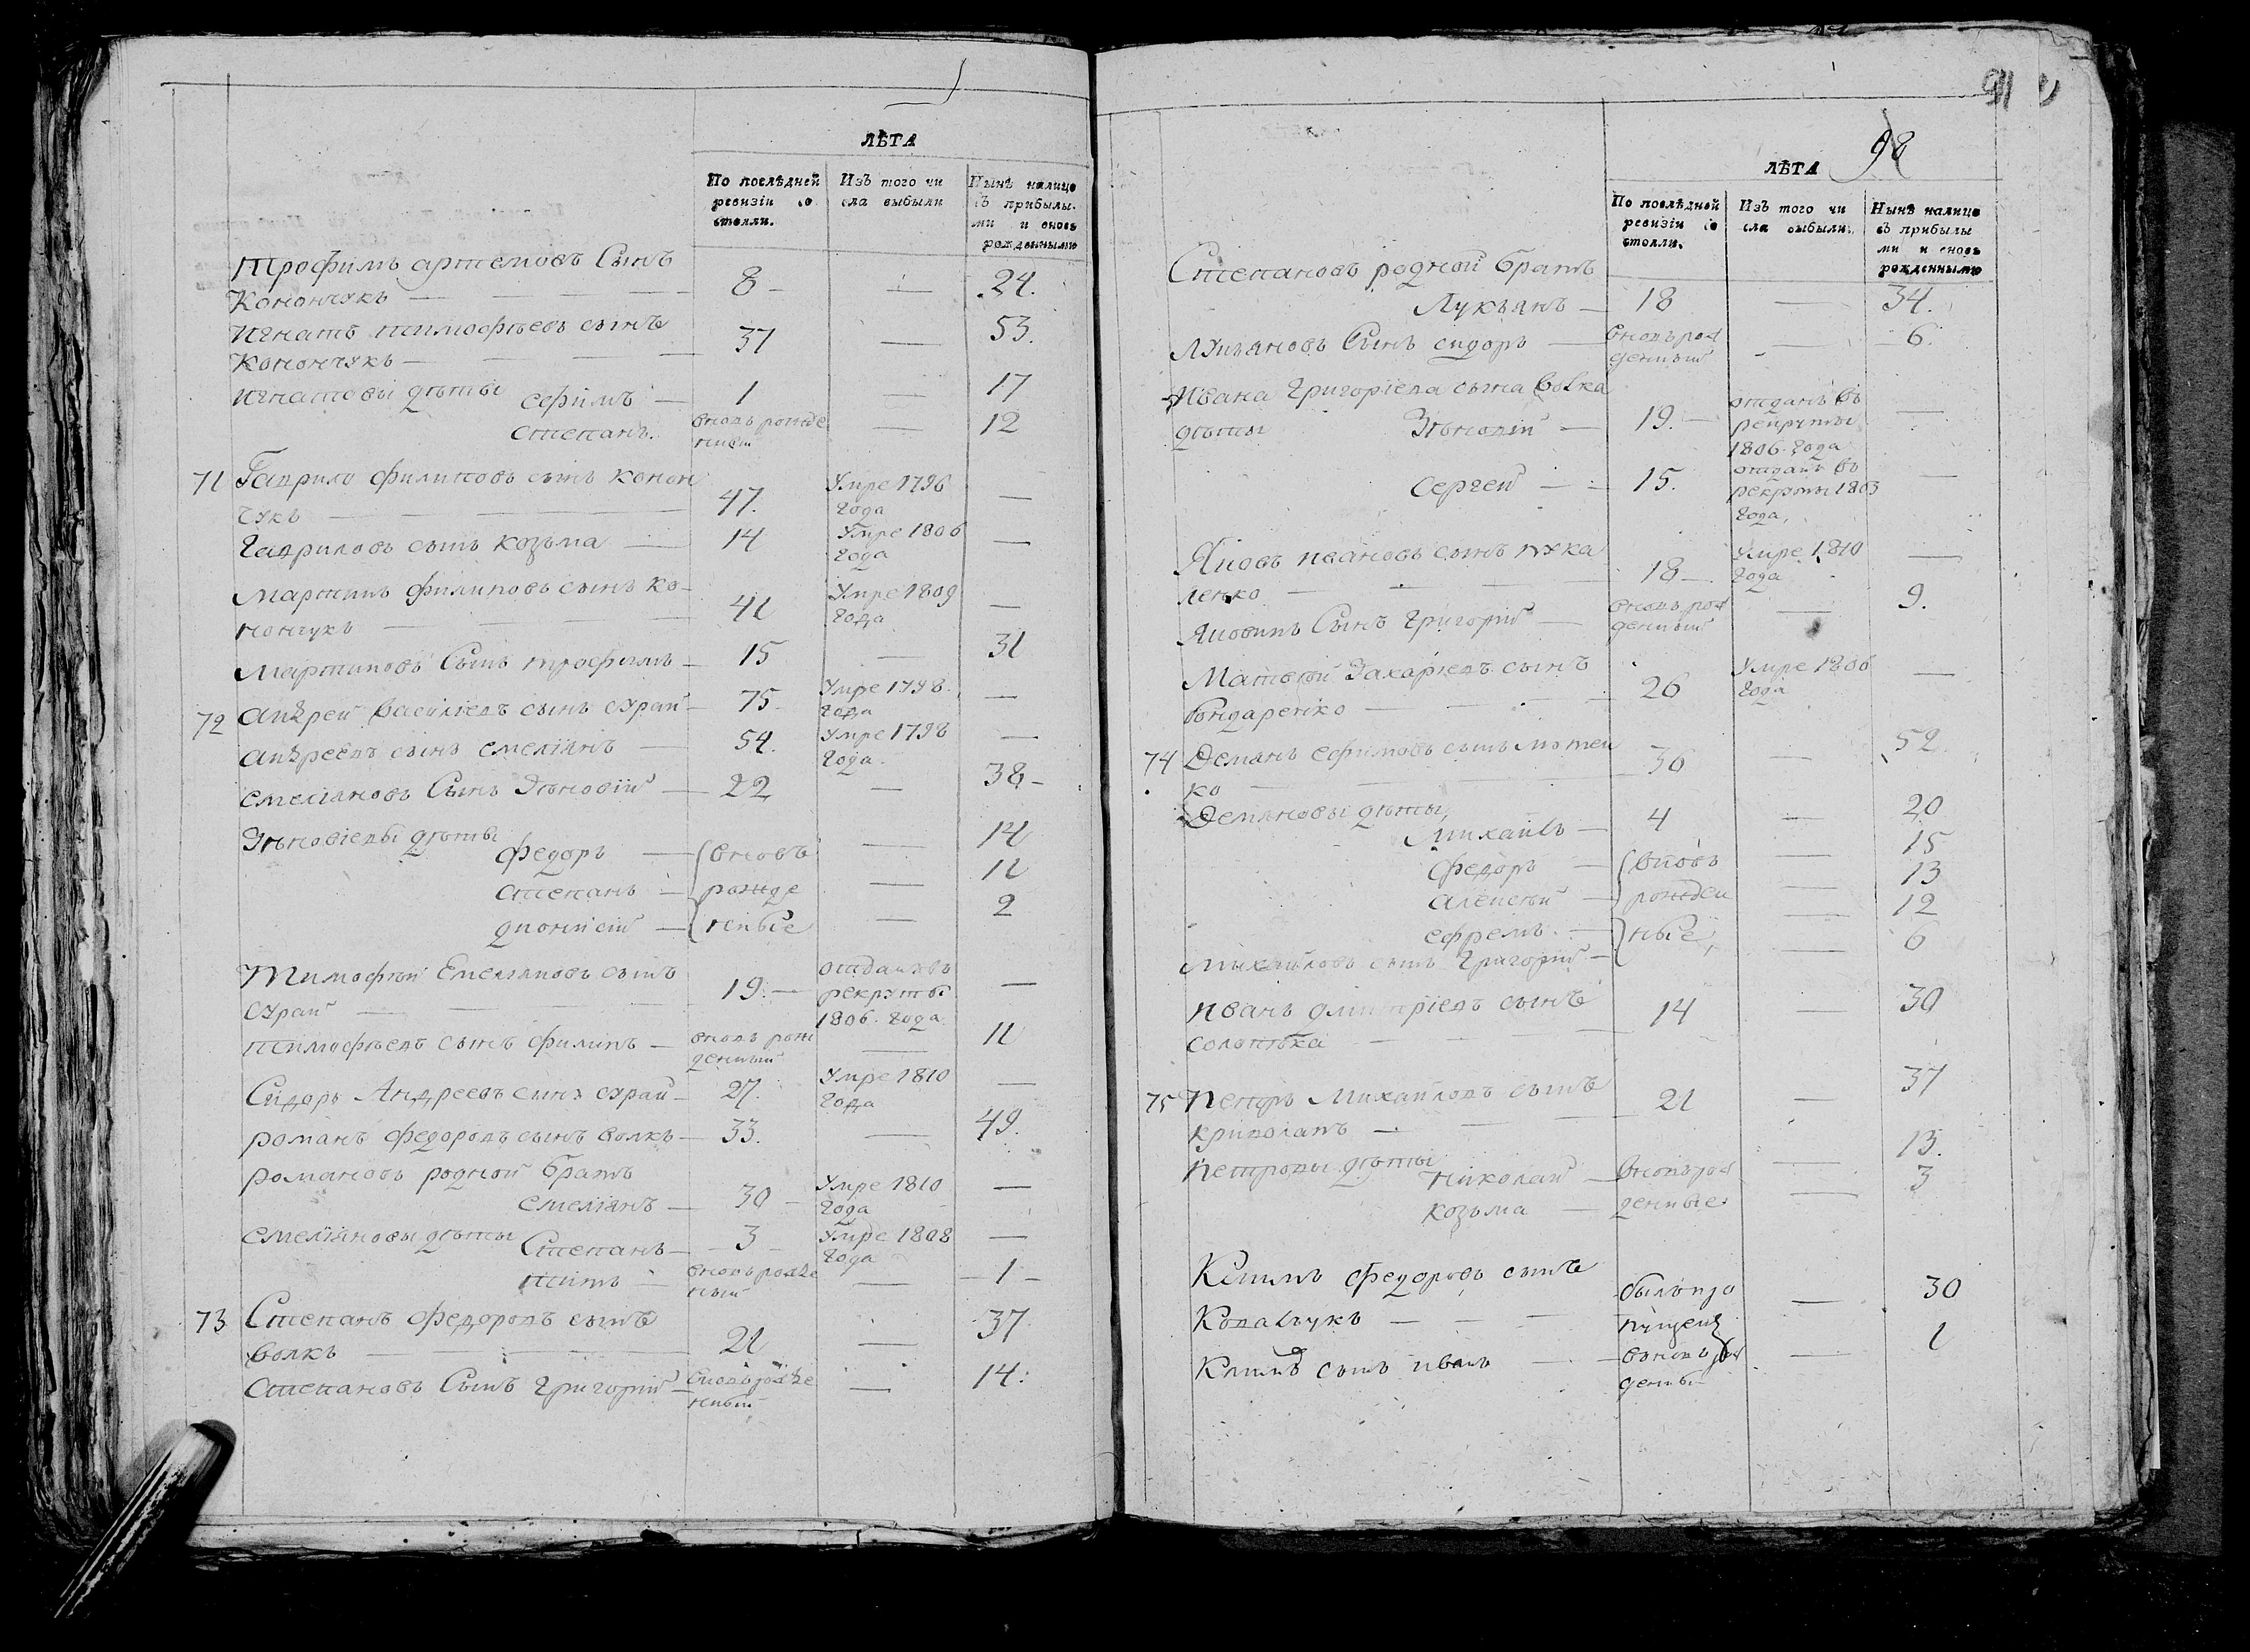 ЛѢТА
По послѣдней ревизіи состояли.
Изъ того числа выбыли
Нынѣ налицо съ прибылыми и вновь рожденными
Трофимъ артемовъ Сынъ
Конончукъ — 8 — 24.
Игнатъ тимофѣевъ сынъ
Конончукъ — 37 — 53.
игнатовы дѣты ефимъ — 1 — 17
степанъ. вновь рожде — 12
нный
71 Гаврило филиповъ сынъ конон
чукъ — 47. Умре 1796 года —
гавриловъ сынъ козьма — 14 Умре 1806 года —
мартинъ филиповъ сынъ ко-
нончукъ — 41 Умре 1809 года —
мартиновъ Сынъ трофимъ — 15 — 31
72 андрей василіевъ сынъ сурай — 75 Умре 1798 года —
андреевъ сынъ емеліянъ — 54. Умре 1798 года —
емеліяновъ Сынъ Зѣновій — 22 — 38 —
Зѣновіевы дѣты
федоръ — вновь — 14
степанъ — рожде — 11
дионисій — нные — 2
Тимофѣй Емеліяновъ сынъ
сурай — 19. — отданъ въ рекруты 1806. года —
тимофѣевъ сынъ филипъ — вновь рож денный — 11
Сидоръ Андреевъ сынъ сурай — 27. Умре 1810 года —
романъ федоровъ сынъ волкъ — 33. — 49.
романовъ родной братъ
емеліянъ — 30 — Умре 1810 года —
емеліяновы дѣты Степанъ — 3 — Умре 1808 года —
титъ — вновь рожде нный — 1 —
73 Степанъ федоровъ сынъ
волкъ — 21 — 37
степановъ Сынъ григорій — вновь рожде нный — 14.
98
ЛѢТА
По послѣдней ревизіи состояли.
Изъ того числа выбыли
Нынѣ налицо съ прибылыми и вновь рожденными
Степановъ родной братъ
Лукьянъ — 18 — 34.
лукьяновъ Сынъ сидоръ — вновь рож денный — 6.
Ивана Григоріева сына волка
дѣты Зѣновій — 19. — отданъ въ рекруты 1806. года —
Сергей — 15. отданъ въ рекруты 1803 года, —
Яковъ ивановъ сынъ
ленко — 18 — Умре 1810 года —
Яковивъ Сынъ григорій — вновь рож денный — 9.
Матвей Захаріевъ сынъ
бондаренко — 26 Умре 1806 года —
74 Демянъ ефимовъ сынъ мотей
ко — 36 — 52
Демяновы дѣты,
михайлъ — 4 — 20
федоръ — вновь — 15
алексѣй — рожден — 13
ефремъ. — ные, — 12
михайловъ сынъ григорій — 6
иванъ дмитріевъ сынъ
солопѣка — 14 — 30
75 петръ михайловъ сынъ
— 21 — 37
петровы дѣты николай — вновь рож — 13.
козьма — денные — 3
Климъ федоровъ сынъ
Ковальчукъ — былъ про пущенъ — 30
Климъ сынъ иванъ — вновь рож денный — 1